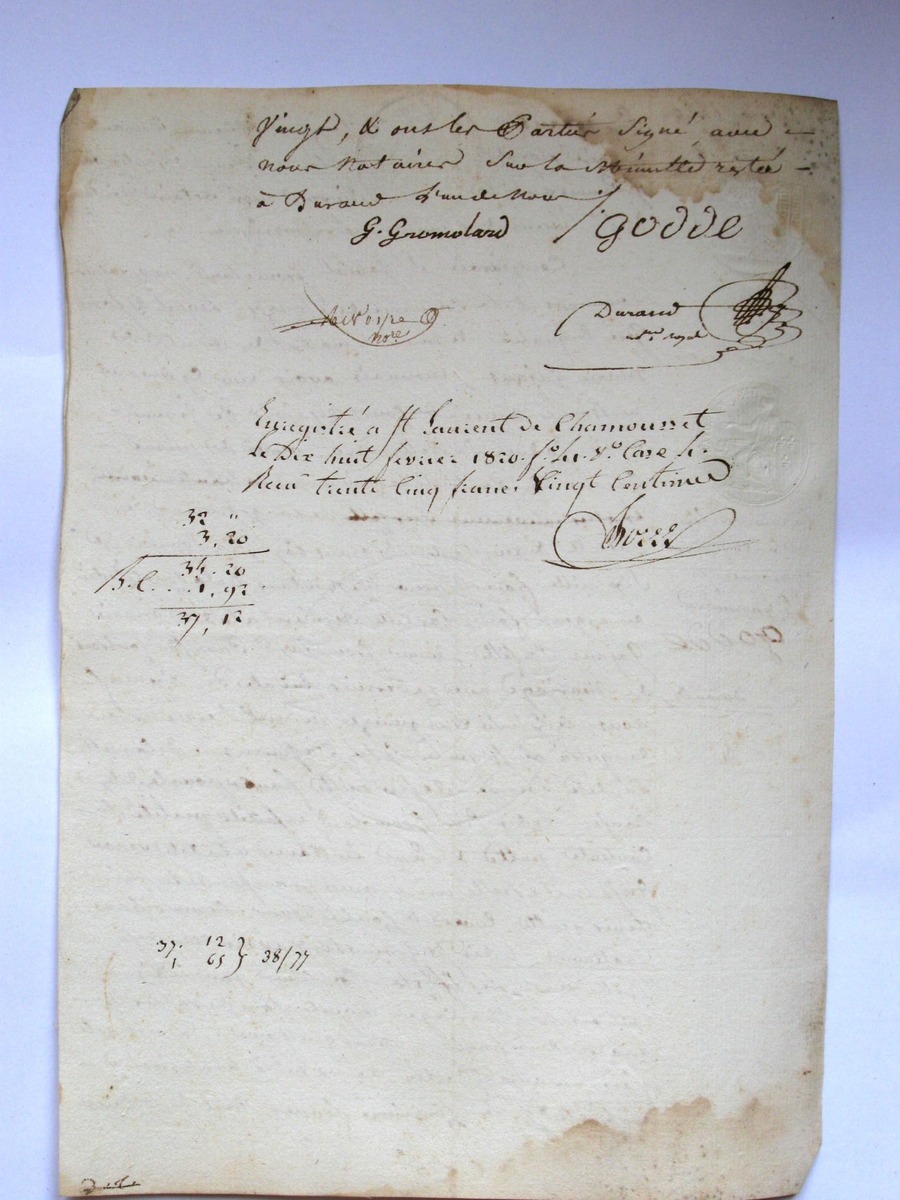 Vingt, & ont les Parties Signé, avec
nous Notaires Sur la Minutte restée
à Durand L'un de Nous ./.
G. Gromolard
godde
not.re
Durand
n.re royal
Enregistré a St. Laurent de Chamousset
Le Dix huit fevrier 1820. f.o 41. V.o Case 4.
Recu trente Cinq francs Vingt Centimes
32 "
3, 20
35. 20
1, 92
37, 12
37. 12
1 65 } 38/77